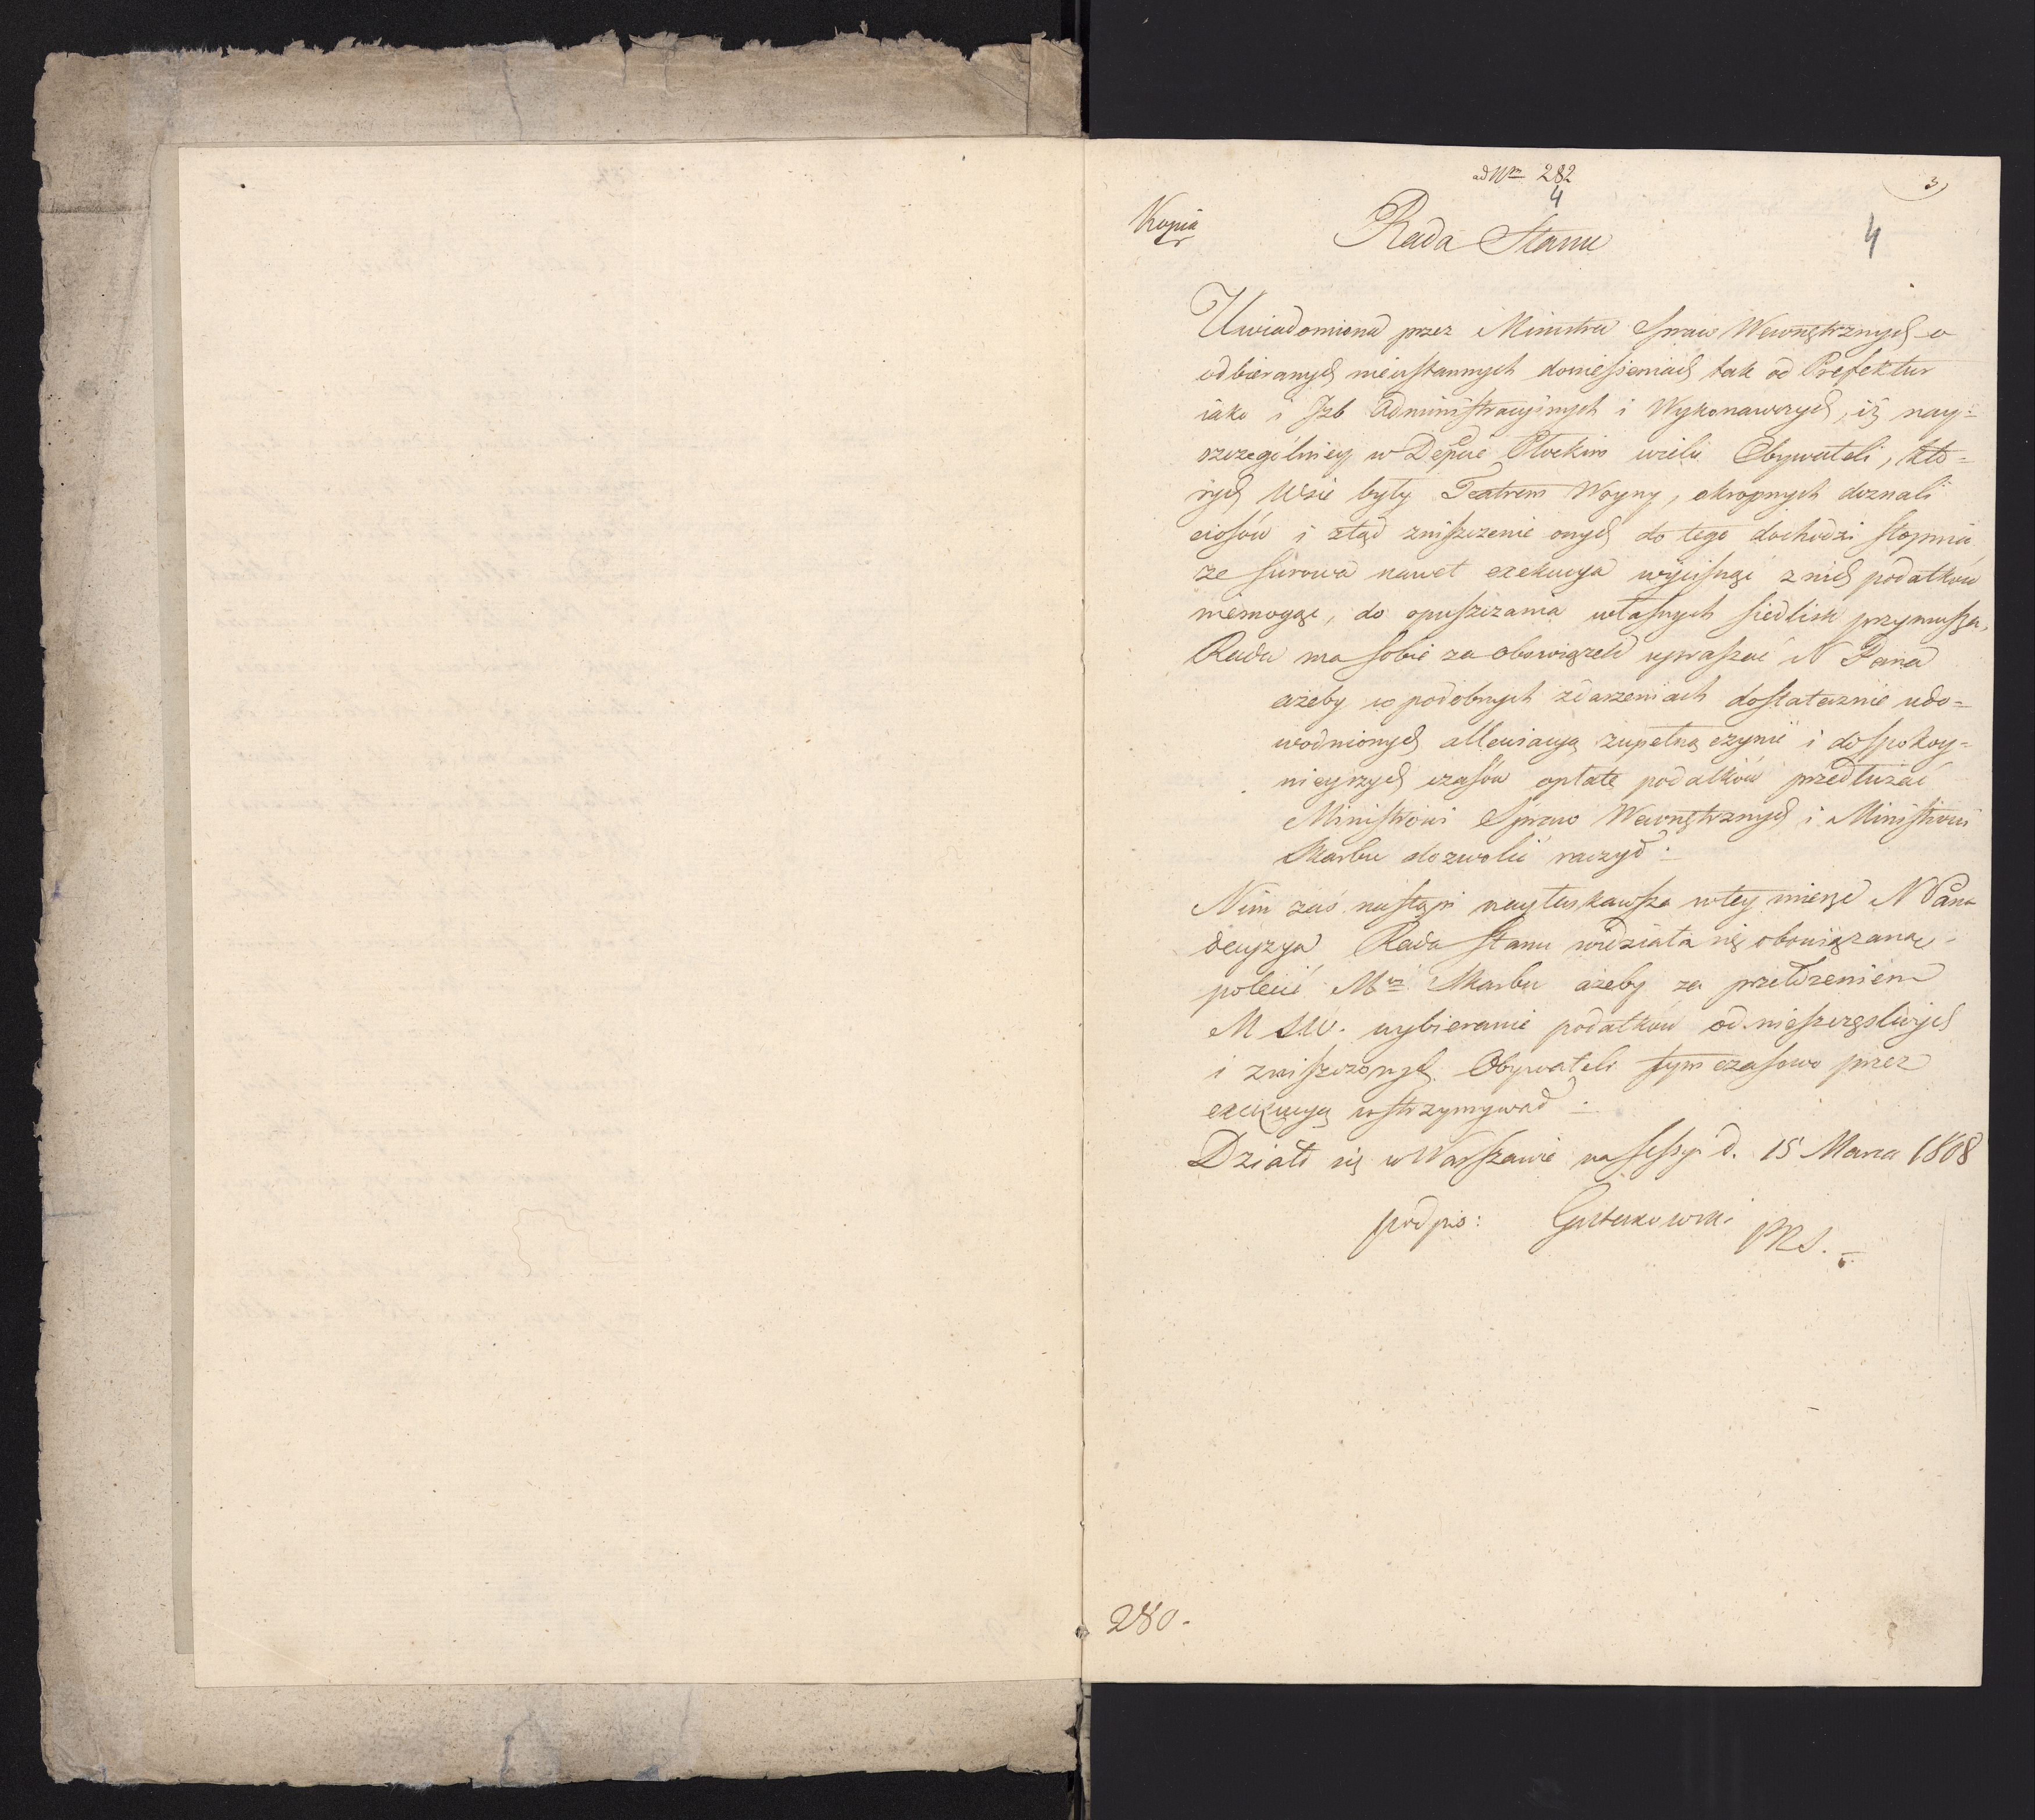 ad Nrm 282
4
3)
4
Kopia
Rada Stanu
Uwiadomiona przez Ministra Spraw Wewnętrznych o
odbieranych nieustannych doniesieniach tak od Prefektur
iako i Izb Administracyinych i Wykonawczych, iż nay=
szczegulniey w Depcie Płockim wielu Obywateli, któ=
rych Wsie były Teatrem Woyny, okropnych doznali
ciosów i ztąd zniszczenie onych do tego dochodzi stopnia
że surowa nawet exekucya wycisnąć z nich podatków
niemogąc, do opuszczania własnych siedlisk przymusza,
Rada ma sobie za obowiązek upraszać N Pana
ażeby w podobnych zdarzeniach dostatecznie udo=
wodnionych allewiacyą zupełną czynić i do spokoy=
nieyszych czasów opłatę podatków przedłużać
Ministrowi Spraw Wewnętrznych i Ministrowi
Skarbu dozwolić raczył :
Nim zaś nastąpi nayłaskawsza w tey mierze N Pana
decyzya Rada Stanu widziała się obowiązaną
polecić Mwi Skarbu ażeby za
M SW. wybieranie podatków od nieszczęśliwych
i zniszczonych Obywateli tymczasowo przez
exekucyą wstrzymywał :
Działo się w Warszawie na Sessyi d. 15 Marca 1808
podpis: Gutakowski
PRS.
280.